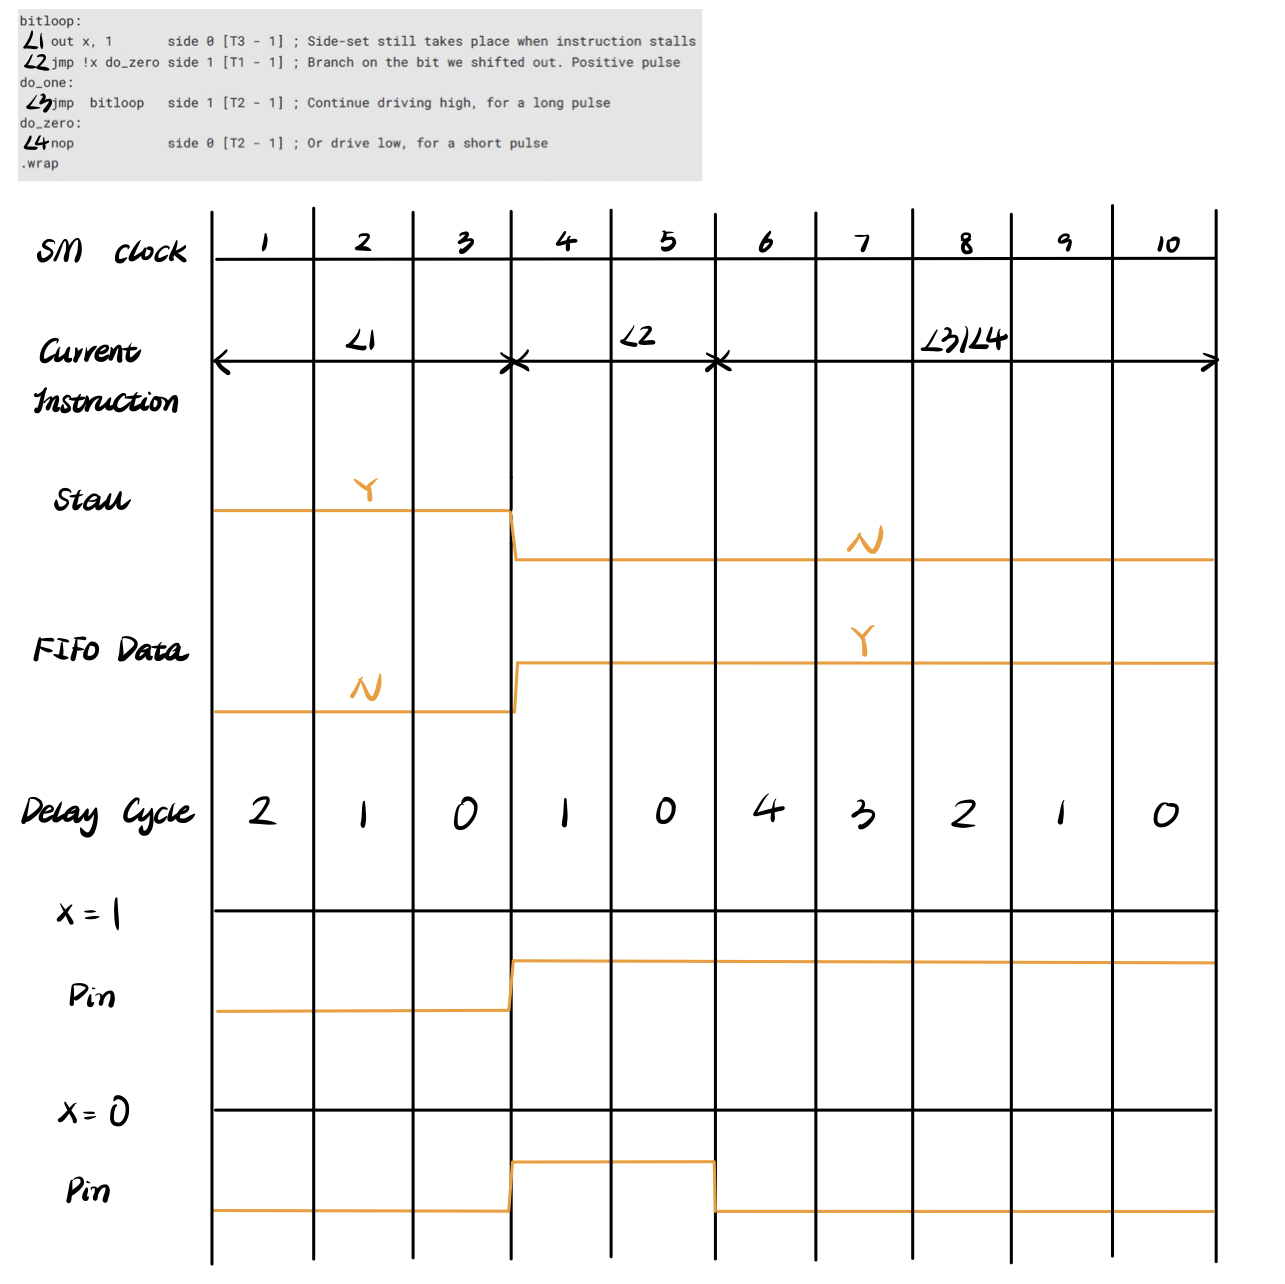 bitloop:
L1 out x, 1 side 0 [T3 - 1] ; Side-set still takes place when instruction stalls
L2 jmp !x do_zero side 1 [T1 - 1] ; Branch on the bit we shifted out. Positive pulse
do_one:
L3 jmp bitloop side 1 [T2 - 1] ; Continue driving high, for a long pulse
do_zero:
L4 nop side 0 [T2 - 1] ; Or drive low, for a short pulse
.wrap
SM clock 1 2 3 4 5 6 7 8 9 10
Current L1 L2 L3/L4
Instruction
Stall Y N
FIFO Data N Y
Delay Cycle 2 1 0 1 0 4 3 2 1 0
X = 1
Pin
X = 0
Pin